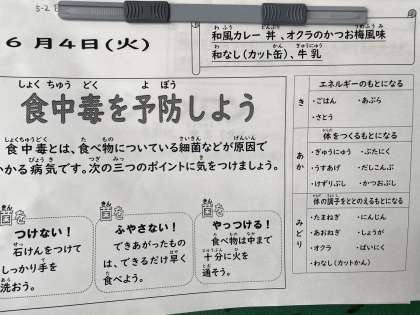 5-2
6月4日(火)
和風カレー丼、オクラのかつお梅風味
和なし(カット缶)、牛乳
食中毒を予防しよう
食中毒とは、食べ物についている細菌などが原因で
かかる病気です。次の三つのポイントに気をつけましょう。
菌を
つけない!
石けんをつけて
しっかり手を
洗おう。
菌を
ふやさない!
できあがったもの
は、できるだけ早く
食べよう。
菌を
やっつける!
食べ物は中まで
十分に火を
通そう。
エネルギーのもとになる
き
・ごはん ・あぶら
・さとう
体をつくるもとになる
あか
・ぎゅうにゅう ・ぶたにく
・うすあげ ・だしこんぶ
・けずりぶし ・かつおぶし
体の調子をととのえるもとになる
みどり
・たまねぎ ・にんじん
・あおねぎ ・しょうが
・オクラ ・ばいにく
・わなし(カットかん)